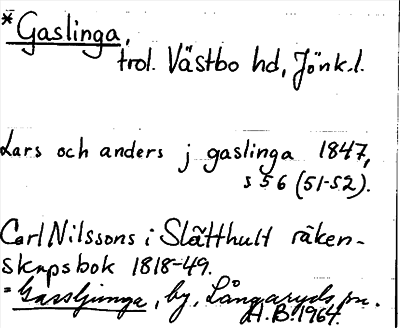 *Gaslinga,
trol. Västbo hd, Jönk.l.
Lars och anders j gaslinga 1847,
s 56 (51-52).
Carl Nilssons i Slätthult räken-
skapsbok 1818-49.
= Gassljunga, by, Långaryds sn.
A.B. 1964.